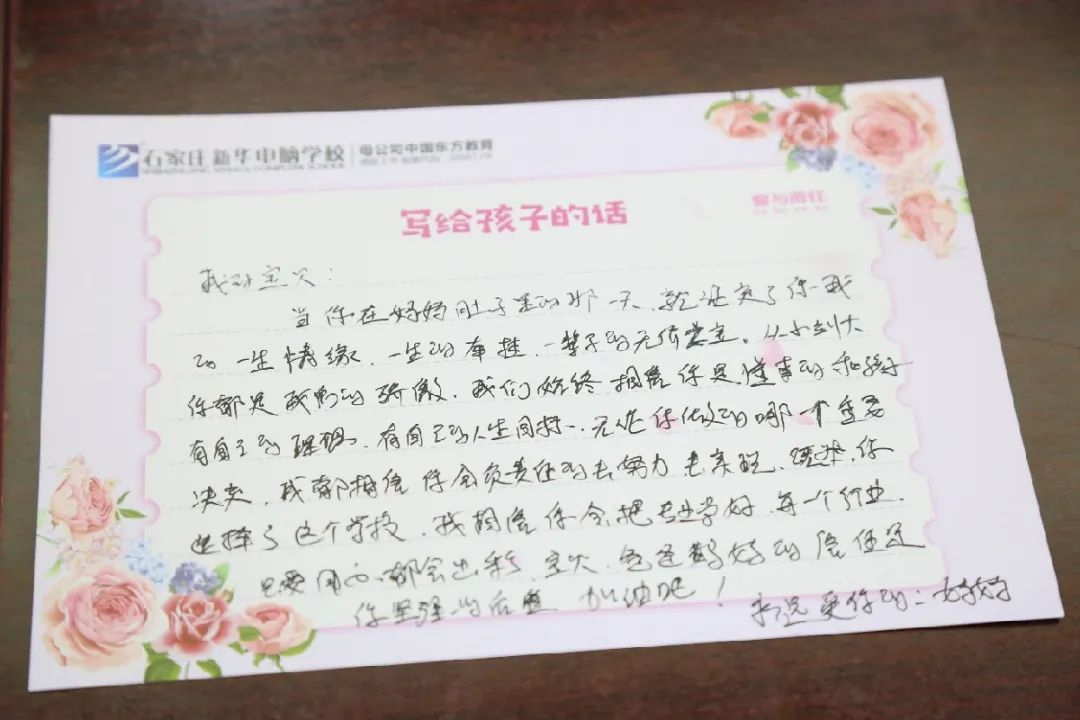 石家庄新华电脑学校 母公司中国东方教育
SHIJIAZHUANG XINHUA COMPUTER SCHOOL
写给孩子的话
爱与责任
我的宝贝:
当你在妈妈肚子里的那一天,就注定了你我
的一生情缘,一生的牵挂,一辈子的无价之宝。从小到大
你都是我们的骄傲,我们始终相信你是懂事的和孩子
有自己的理想,有自己的人生目标,无论你做的哪一个重要
决定,我都相信你会负责任的去努力去实现,既然你
选择了这个学校,我相信你会把专业学好,每一个行业,
只要用心都会出彩,宝贝,爸爸妈妈的信任是
你坚强的后盾 加油吧!
永远爱你的:妈妈